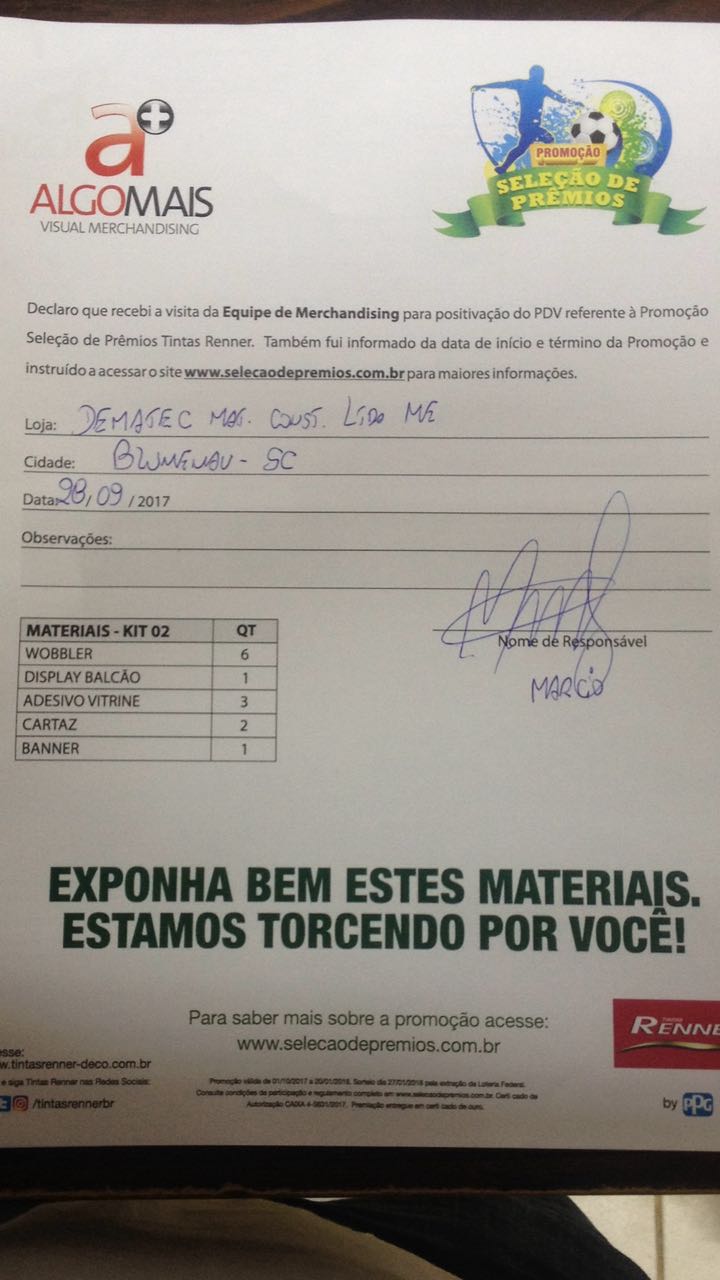 a+
ALGOMAIS
VISUAL MERCHANDISING
PROMOÇÃO
SELEÇÃO DE
PRÊMIOS
Declaro que recebi a visita da Equipe de Merchandising para positivação do PDV referente à Promoção
Seleção de Prêmios Tintas Renner. Também fui informado da data de início e término da Promoção e
instruído a acessar o site www.selecaodepremios.com.br para maiores informações.
Loja: DEMATEC MAT. CONST. LTDA ME
Cidade: BLUMENAU - SC
Data: 28/09/2017
Observações:
Nome de Responsável
MARCIO
MATERIAIS - KIT 02 QT
WOBBLER 6
DISPLAY BALCÃO 1
ADESIVO VITRINE 3
CARTAZ 2
BANNER 1
EXPONHA BEM ESTES MATERIAIS.
ESTAMOS TORCENDO POR VOCÊ!
Para saber mais sobre a promoção acesse:
www.selecaodepremios.com.br
TINTAS
RENNE
esse:
w.tintasrenner-deco.com.br
e siga Tintas Renner nas Redes Sociais:
/tintasrennerbr
Promoção válida de 01/10/2017 a 20/01/2018. Sorteio dia 27/01/2018 pela extração da Loteria Federal.
Consulte condições de participação e regulamento completo em www.selecaodepremios.com.br. Certificado de
Autorização CAIXA 4-5631/2017. Premiação entregue em certificado de ouro.
by PPG